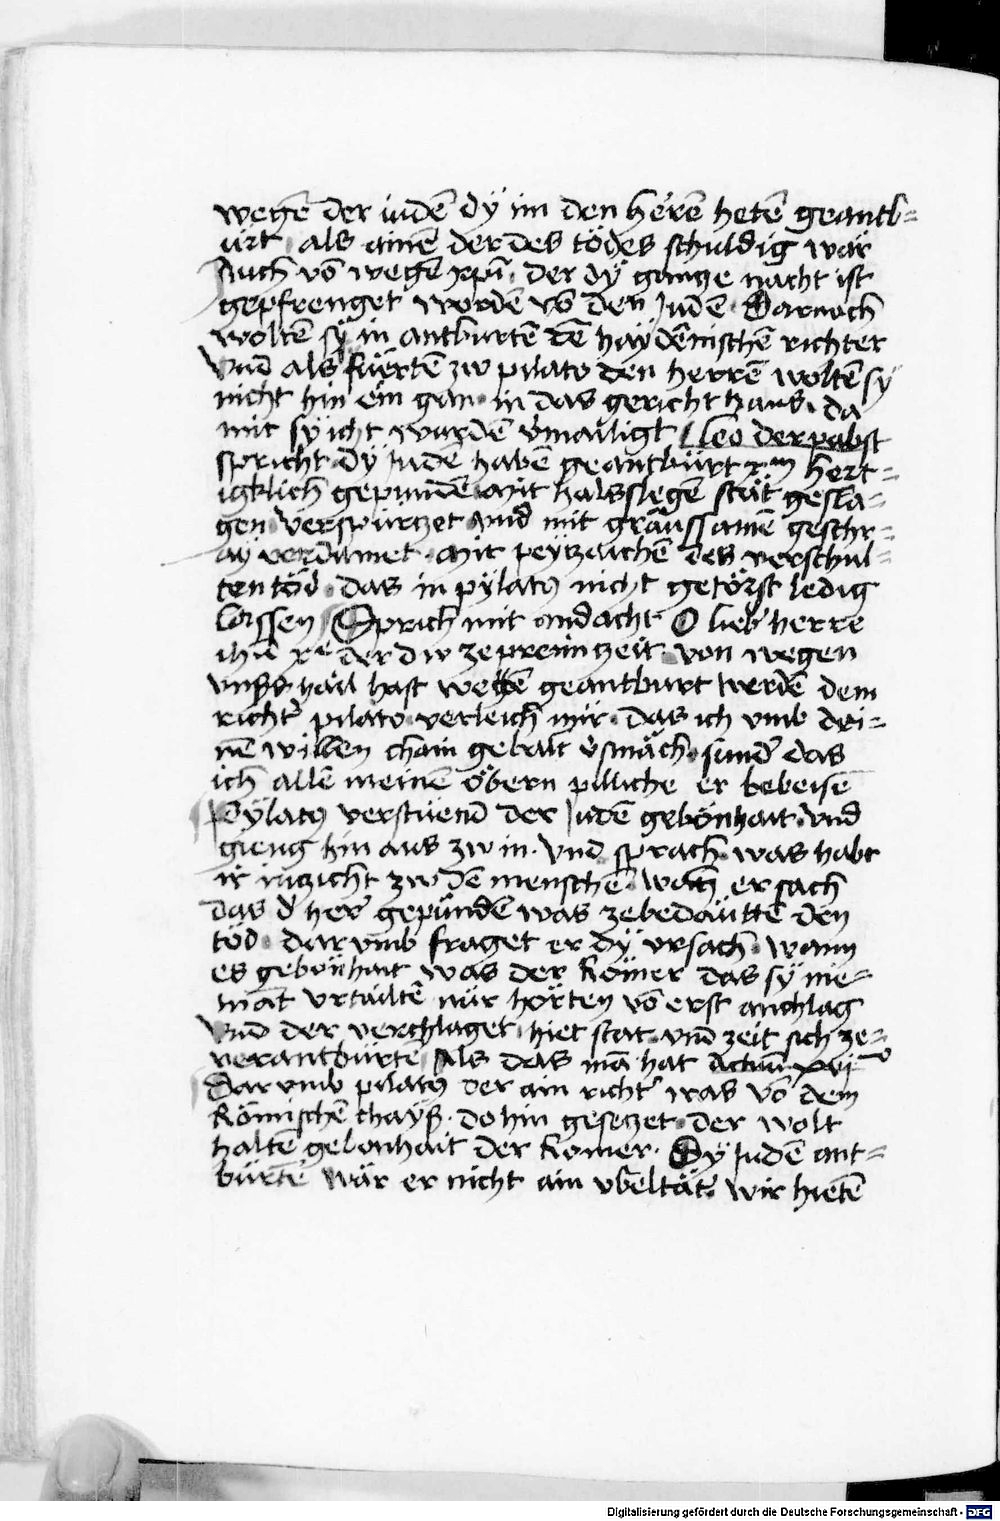 wegē der iudē dÿ im den herrē hetē geantb=
ürt als ainē der des tödes schuldig wär
Auch vō wegē xpī der dÿ gancze nacht ist
gepfrenget wordē vō den Judē Darnoch
woltē sÿ in antburtē dē haydēnischē richter
Vnd als fuërtē zw pilato den herrē woltē sÿ
nicht hin ein gan in das gericht haus da
mit sÿ icht wurdē v̉mailigt Leo der pabst
spricht dÿ Judē habē geantbürt xpm hert=
igklich gepundē mit halsslegē stät gesla=
gen verspürczet vnd mit graüssamē geschr=
aÿ verdamet mit peÿtzichē des verschul=
ten töd das in pÿlatus nicht getörst ledig
lassen Sprich mit andacht O lieber herre
ihū xe der dw ze preimczeit von wegen
vnsers hail hast wellē geantburt werdē dem
richter pilato verleich mir das ich vmb dei=
nē willen chain gebalt v̉smäch sunder das
ich allē meinē öbern pilliche er bebeisē
Pÿlatus verstüend der Judē gebonhait vnd
gieng hin aus zw in vnd sprach was habt
ir inczicht zw dē menschē wan er sach
das der her gepundē was zebedäuttē den
töd dar vmb fraget er dÿ vrsach wann
es gebonhait was der Römer das sÿ nie=
māt vrtailtē nür hörten vō erst anchlag
Vnd der verchlaget hiet stat vnd zeit sich ze=
verantbürtē Als das mā hat Actuū xxv°
Dar vmb pilatus der ain richter was vō dem
Römischē chaÿser do hin gesetzet der wolt
haltē gebonhait der Romer Dÿ Judē ant=
bürtē wär er nicht ain vbeltäter wir hietē
Digitalisierung gefördert durch die Deutsche Forschungsgemeinschaft - DFG